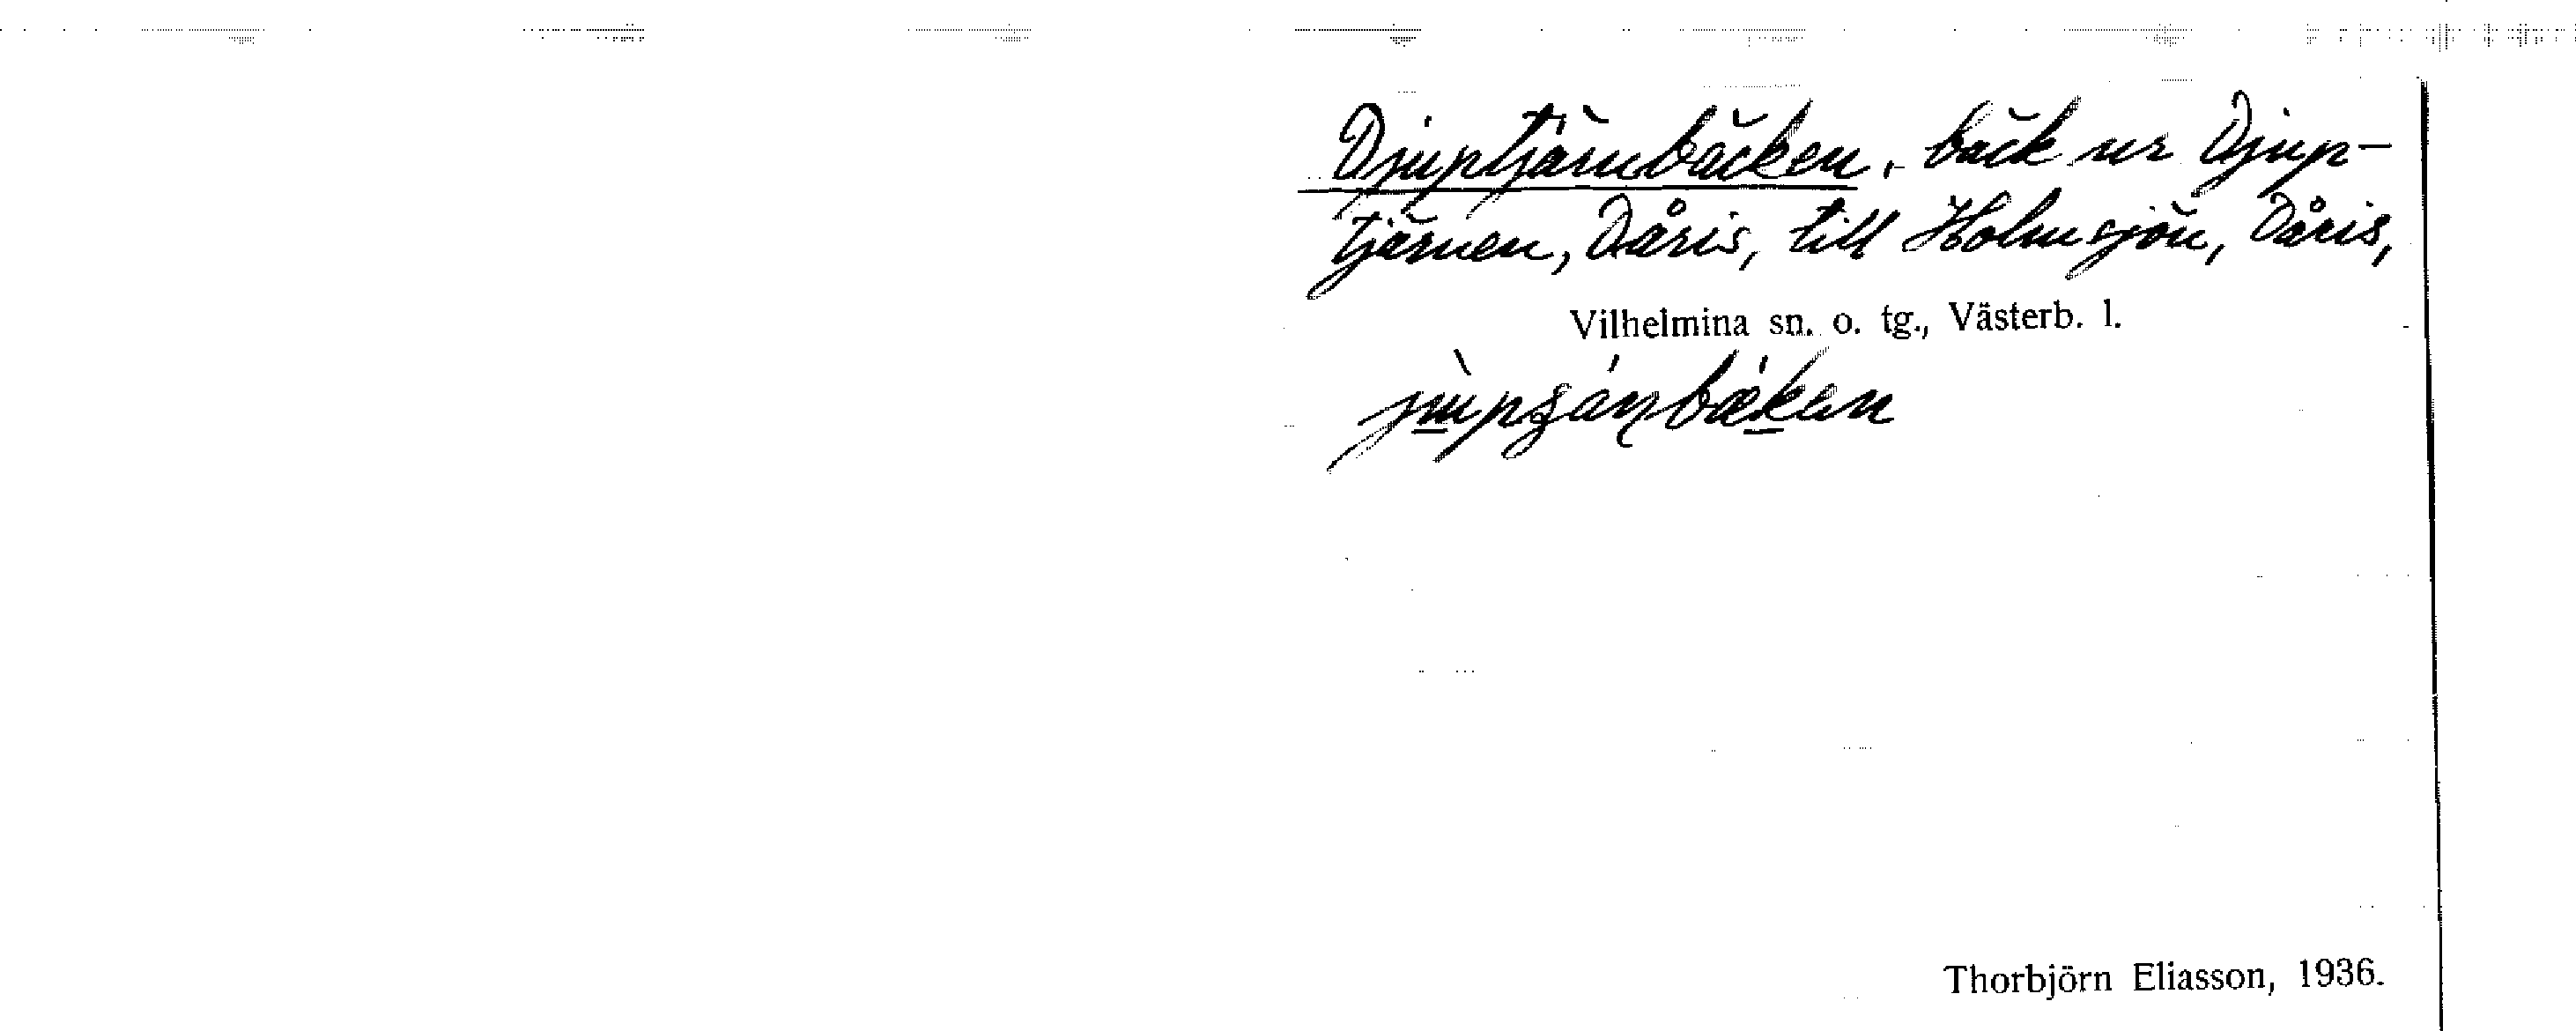 Djuptjärnbäcken, bäck ur Djup-
tjärnen, Dåris, till Holmsjön, Dåris,
Vilhelmina sn. o. tg., Västerb. l.
Thorbjörn Eliasson, 1936.